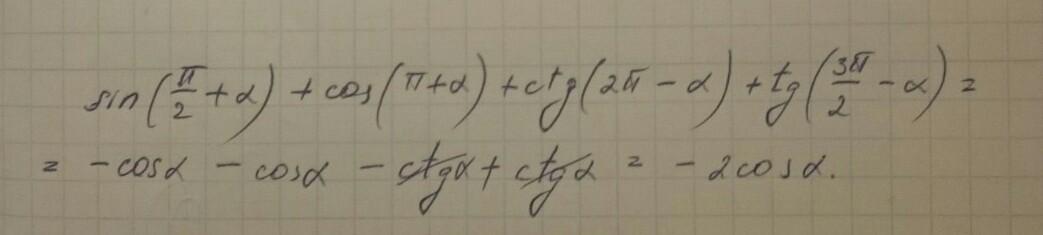 sin(π/2 + α) + cos(π + α) + ctg(2π − α) + tg(3π/2 − α) =
= − cosα − cosα − ctgα + ctgα = − 2cosα.